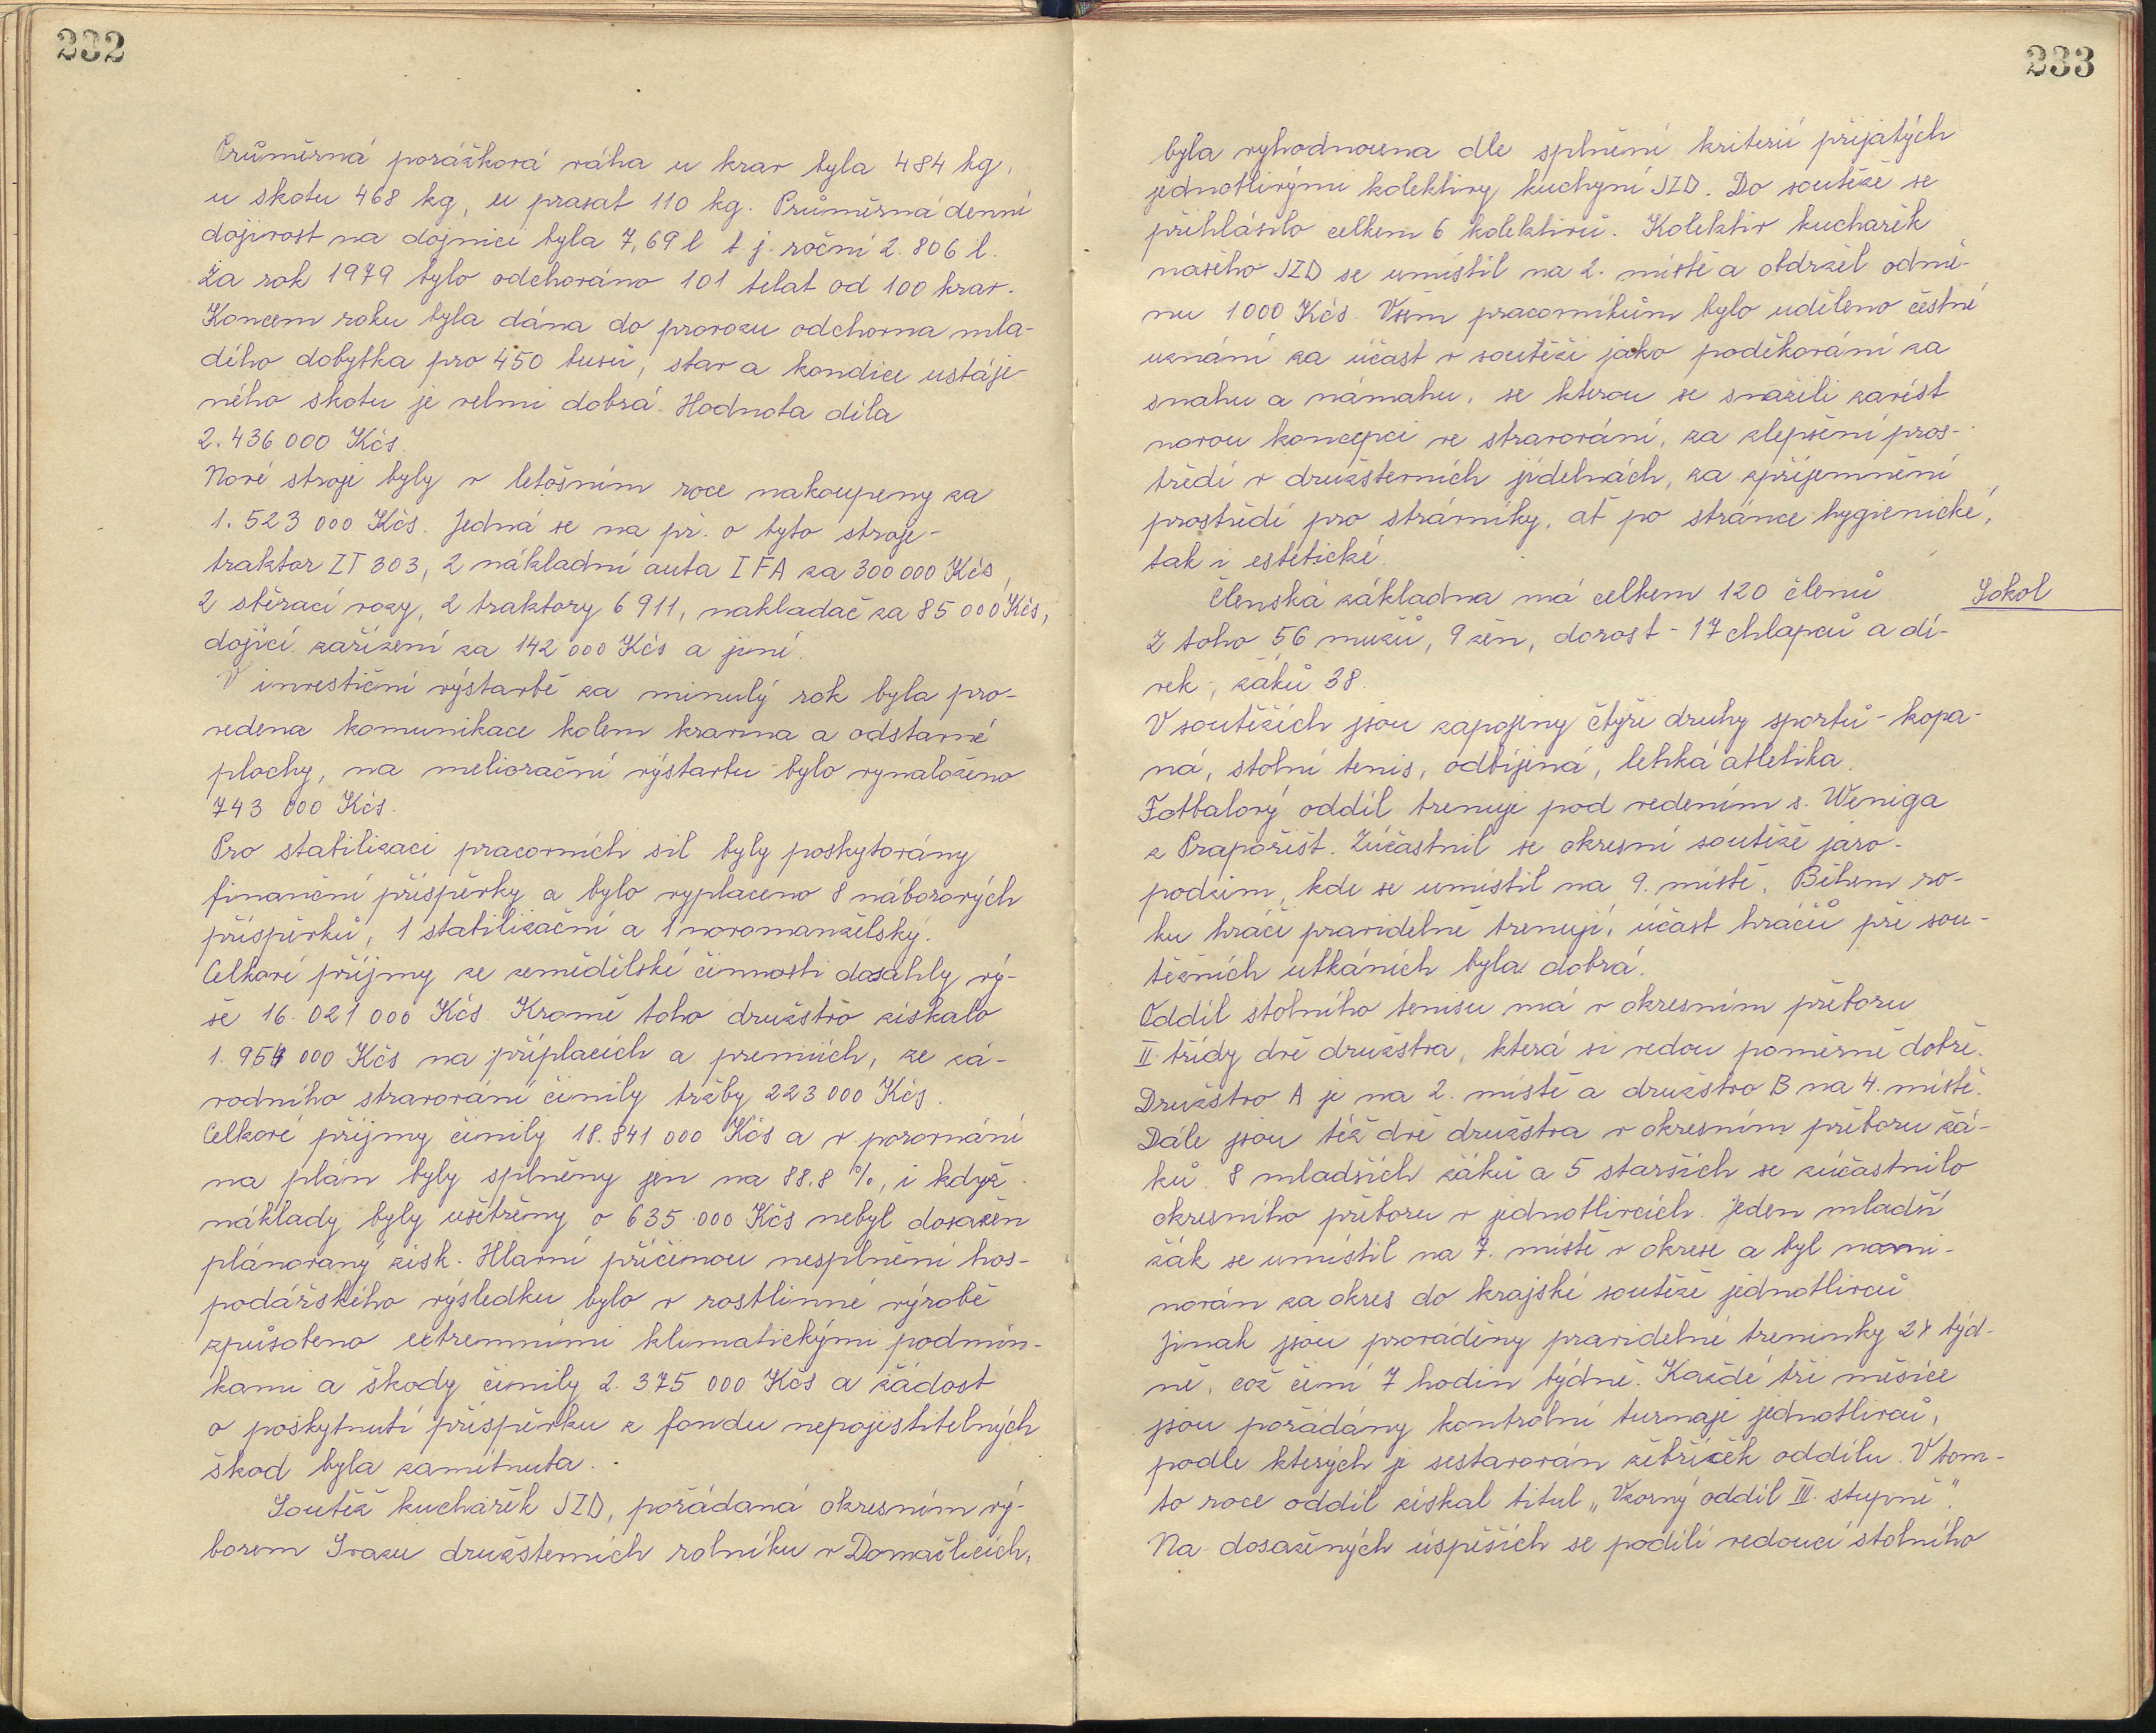 232
Průměrná porážková váha u krav byla 484 kg,
u skotu 468 kg, u prasat 110 kg. Průměrná denní
dojivost na dojnici byla 7,69 l t. j. roční 2.806 l.
Za rok 1979 bylo odchováno 101 telat od 100 krav.
Koncem roku byla dána do provozu odchovna mla-
dého dobytka pro 450 kusů, stav a kondice ustáje-
ného skotu je velmi dobrá. Hodnota díla
2.436 000 Kčs.
Nové stroje byly v letošním roce nakoupeny za
1. 523 000 Kčs. Jedná se na př. o tyto stroje-
traktor ZT 303, 2 nákladní auta IFA za 300 000 Kčs,
2 sběrací vozy, 2 traktory 6911, nakladač za 85 000 Kčs,
dojící zařízení za 142 000 Kčs a jiné.
V investiční výstavbě za minulý rok byla pro-
vedena komunikace kolem kravína a odstavné
plochy, na meliorační výstavbu bylo vynaloženo
743 000 Kčs.
Pro stabilizaci pracovních sil byly poskytovány
finanční příspěvky a bylo vyplaceno 8 náborových
příspěvků, 1 stabilizační a 1 novomanželský.
Celkové příjmy ze zemědělské činnosti dosáhly vý-
še 16. 021 000 Kčs. Kromě toho družstvo získalo
1. 954 000 Kčs na příplacích a premiích, ze zá-
vodního stravování činily tržby 223 000 Kčs.
Celkové příjmy činily 18. 841 000 Kčs a v porovnání
na plán byly splněny jen na 88.8 %, i když
náklady byly ušetřeny o 635 000 Kčs nebyl dosažen
plánovaný zisk. Hlavní příčinou nesplnění hos-
podářského výsledku bylo v rostlinné výrobě
způsobeno extremními klimatickými podmín-
kami a škody činily 2. 375 000 Kčs a žádost
o poskytnutí příspěvku z fondu nepojistitelných
škod byla zamítnuta.
Soutěž kuchařek JZD, pořádaná okresním vý-
borem Svazu družstevních rolníku v Domažlicích,
233
byla vyhodnocena dle splnění kriterií přijatých
jednotlivými kolektivy kuchyní JZD. Do soutěže se
přihlásilo celkem 6 kolektivů. Kolektiv kuchařek
našeho JZD se umístil na 2. místě a obdržel odmě-
nu 1000 Kčs. Všem pracovníkům bylo uděleno čestné
uznání za účast v soutěži jako poděkování za
snahu a námahu, se kterou se snažili zavést
novou koncepci ve stravování, za zlepšení pros-
tředí v družstevních jídelnách, za zpříjemnění
prostředí pro strávníky, ať po stránce hygienické,
tak i estetické.
Členská základna má celkem 120 členů
Sokol
Z toho 56 mužů, 9 žen, dorost - 17 chlapců a dí-
vek, žáků 38.
V soutěžích jsou zapojeny čtyři druhy sportů - kopa-
ná, stolní tenis, odbíjená, lehká atletika.
Fotbalový oddíl trenuje pod vedením s. Weniga
z Prapořišť. Zúčastnil se okresní soutěže jaro-
podzim, kde se umístil na 9. místě. Během ro-
ku hráči pravidelně trenují, účast hráčů při sou-
těžních utkáních byla dobrá.
Oddíl stolního tenisu má v okresním přeboru
II. třídy dvě družstva, která si vedou poměrně dobře.
Družstvo A je na 2. místě a družstvo B na 4. místě.
Dále jsou též dvě družstva v okresním přeboru žá-
ků. 8 mladších žáků a 5 starších se zúčastnilo
okresního přeboru v jednotlivcích. Jeden mladší
žák se umístil na 7. místě v okrese a byl nomi-
nován za okres do krajské soutěže jednotlivců
Jinak jsou prováděny pravidelné treninky 2x týd-
ně, což činí 7 hodin týdně. Každé tři měsíce
jsou pořádány kontrolní turnaje jednotlivců,
podle kterých je sestavován žebříček oddílu. V tom-
to roce oddíl získal titul „Vzorný oddíl III. stupně".
Na dosažených úspěších se podílí vedoucí stolního